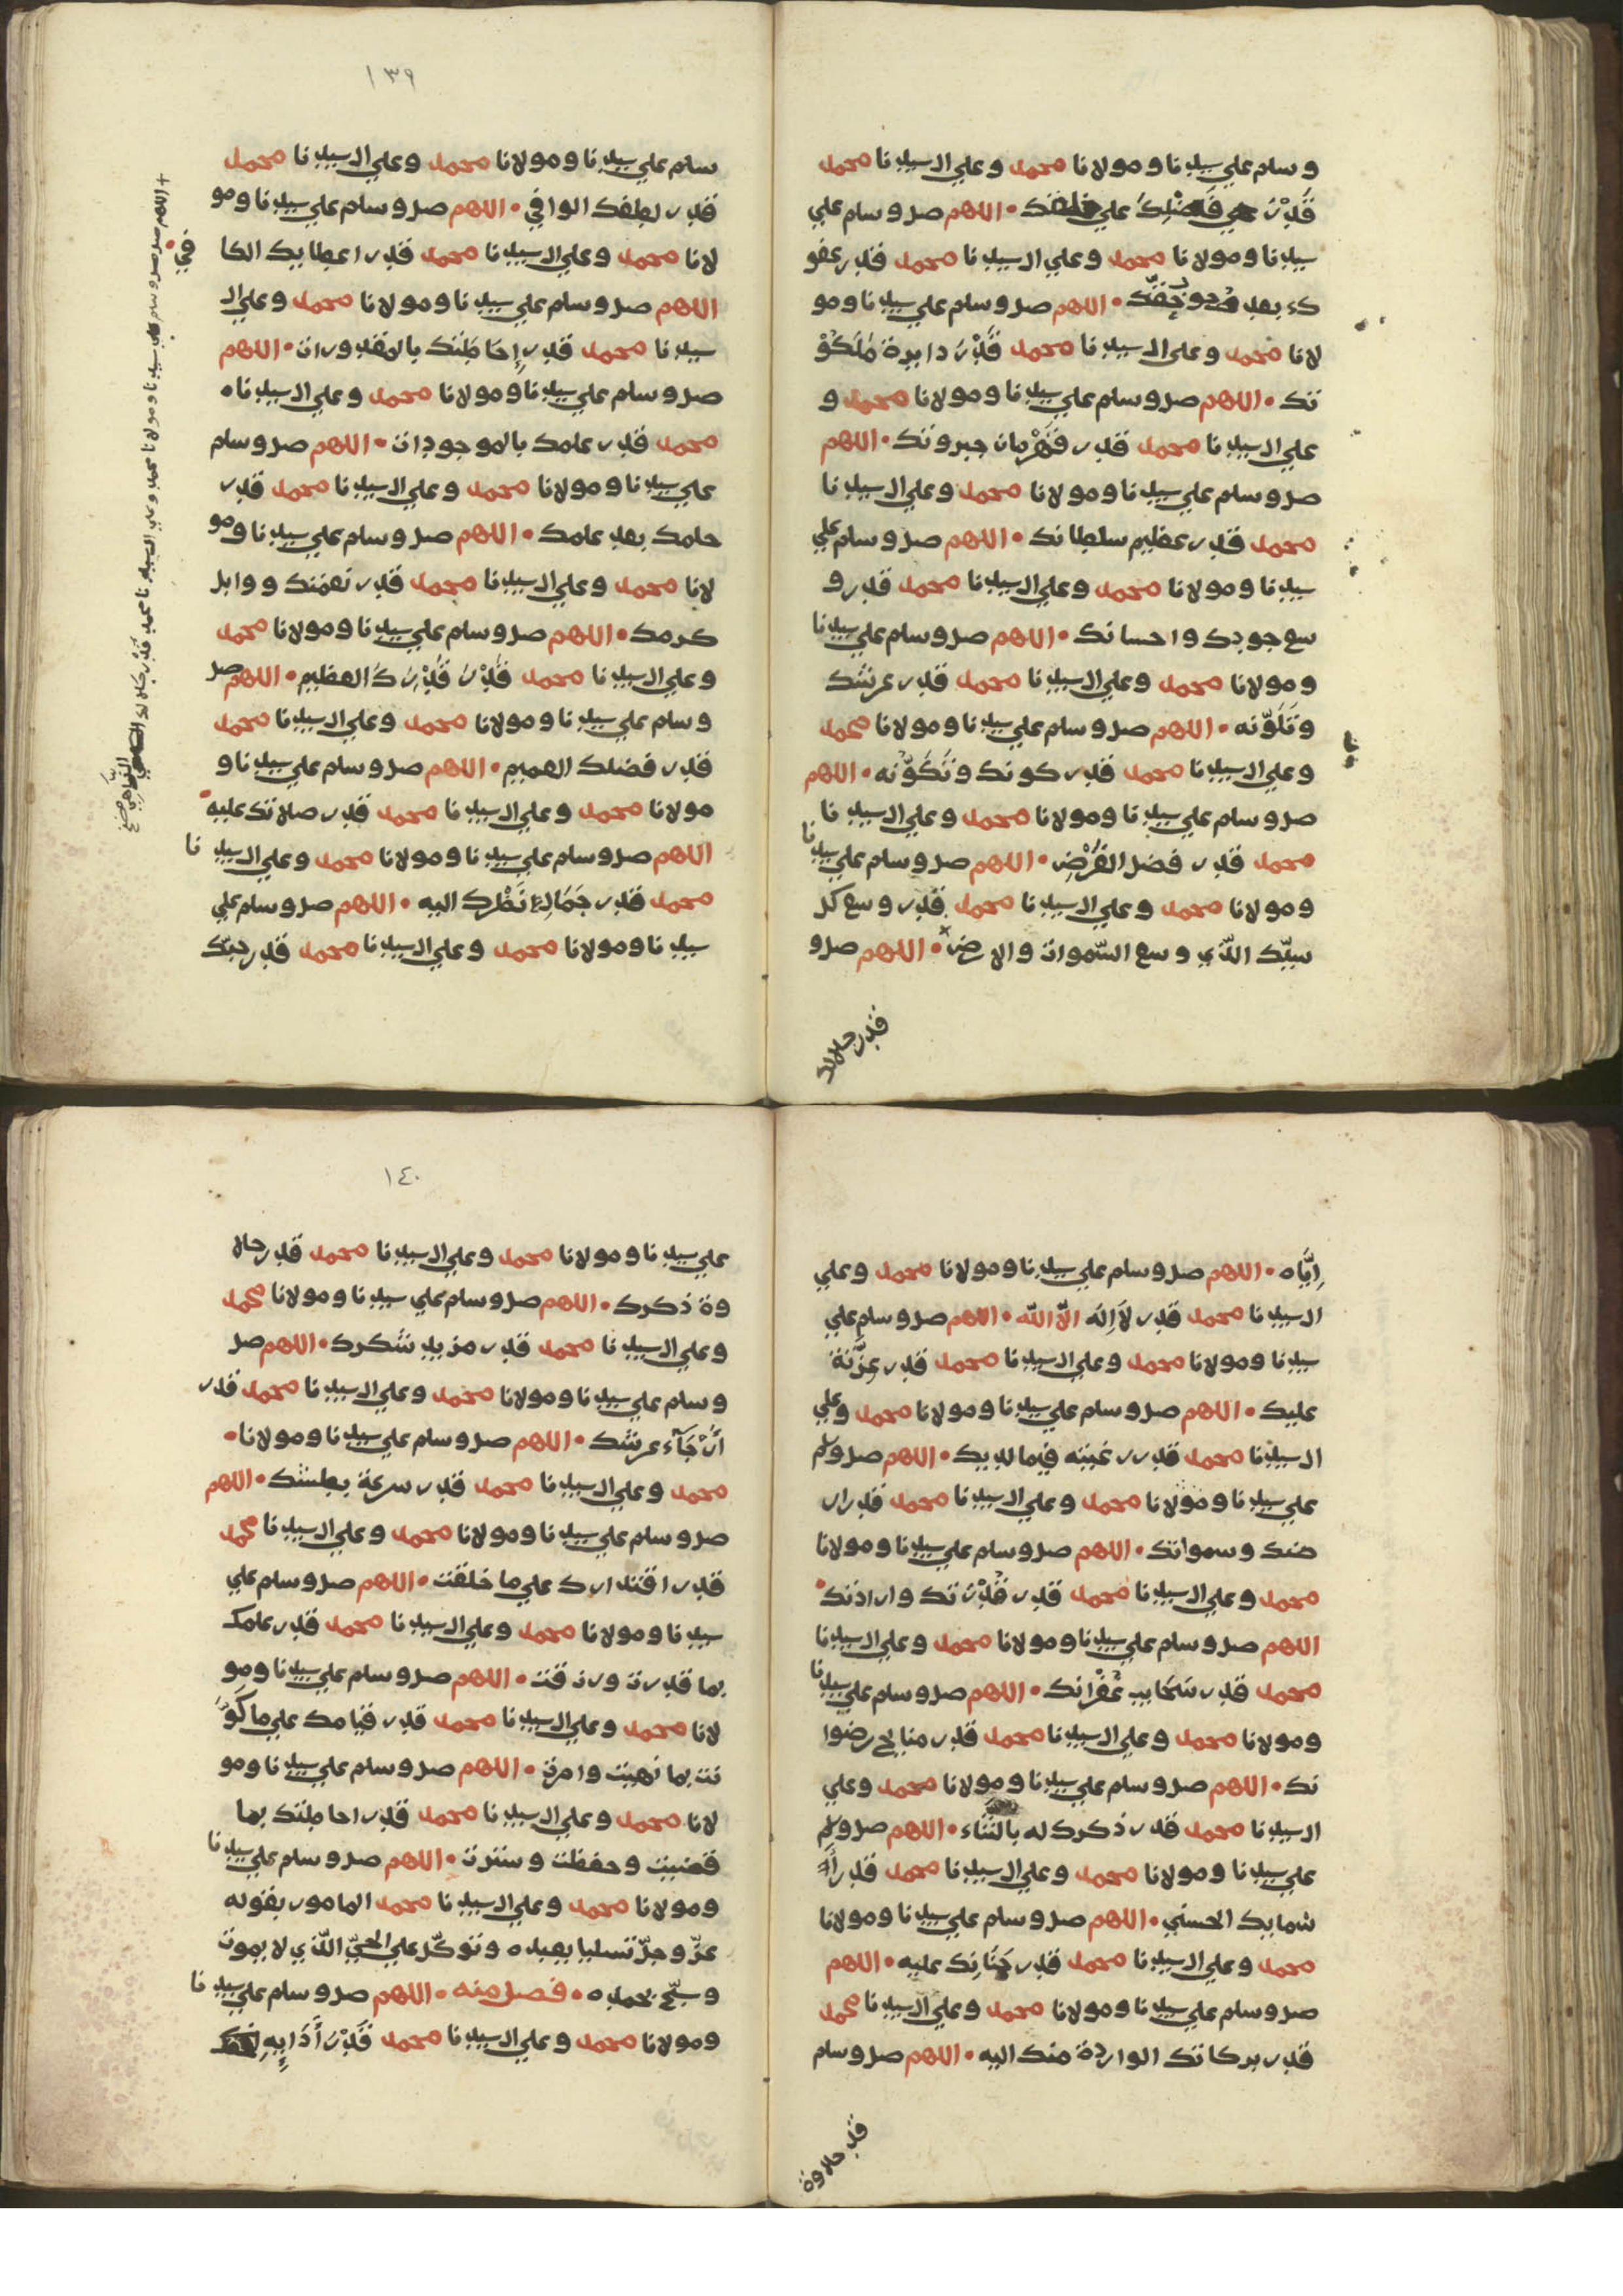 وسلم علي سيدنا ومولانا محمد وعلي ال سيدنا محمد
قَدْرَ فَضْلِكَ علي خلقك • اللهم صل وسلم علي
سيدنا ومولانا محمد وعلي ال سيدنا محمد قدر عفو
كء بعد • اللهم صل وسلم علي سيدنا ومو
لانا محمد وعلي ال سيدنا محمد قَدْرَ دايرة مَلَكُوْ
تك • اللهم صل وسلم علي سيدنا ومولانا محمد و
علي ال سيدنا محمد قدر قَهْرمان جبروتك • اللهم
صل وسلم علي سيدنا ومولانا محمد وعلي ال سيدنا
محمد قدر عظيم سلطانك • اللهم صل وسلم علي
سيدنا ومولانا محمد وعلي ال سيدنا محمد قدر و
سع جودك واحسانك • اللهم صل وسلم علي سيدنا
ومولانا محمد وعلي ال سيدنا محمد قدر عرشك
وتَلَوّنه • اللهم صل وسلم علي سيدنا ومولانا محمد
وعلي ال سيدنا محمد قدر كونك وتَكَوّنه • اللهم
صل وسلم علي سيدنا ومولانا محمد وعلي ال سيدنا
محمد قدر فضل الفَرْضِ • اللهم صل وسلم علي سيدنا
ومولانا محمد وعلي ال سيدنا محمد قدر وسع كر
سيّك الّذي وسع السّموات والارض • اللهم صل و
قدر جلالك
١٣٩
سلم علي سيدنا ومولانا محمد وعلي ال سيدنا محمد
قدر لطفك الوافي • اللهم صل وسلم علي سيدنا ومو
لانا محمد وعلي ال سيدنا محمد قدر اعطايك الكا
في •
اللهم صل وسلم علي سيدنا ومولانا محمد وعلي ال
سيدنا محمد قدر إحَاطتك بالمقدورات • اللهم
صل وسلم علي سيدنا ومولانا محمد وعلي ال سيدنا •
محمد قدر علمك بالموجودات • اللهم صل وسلم
علي سيدنا ومولانا محمد وعلي ال سيدنا محمد قدر
حلمك بعد علمك • اللهم صل وسلم علي سيدنا ومو
لانا محمد وعلي ال سيدنا محمد قدر نعمتك ووابل
كرمك • اللهم صل وسلم علي سيدنا ومولانا محمد
وعلي ال سيدنا محمد قَدْرَ قَدْرِكَ العظيم • اللهم صل
وسلم علي سيدنا ومولانا محمد وعلي ال سيدنا محمد
قدر فضلك العميم • اللهم صل وسلم علي سيدنا و
مولانا محمد وعلي ال سيدنا محمد قدر صلاتك عليه •
اللهم صل وسلم علي سيدنا ومولانا محمد وعلي ال سيدنا
محمد قدر جَمَالِ نَظْرِك اليه • اللهم صل وسلم علي
سيدنا ومولانا محمد وعلي ال سيدنا محمد قدر حبّك
+ اللهم صل وسلم علي سيدنا ومولانا محمد وعلي ال سيدنا محمد قَدْرَ جلالك
إيَّاه • اللهم صل وسلم علي سيدنا ومولانا محمد وعلي
ال سيدنا محمد قدر لاَ إلَه الاّ الله • اللهم صل وسلم علي
سيدنا ومولانا محمد وعلي ال سيدنا محمد قدر عِزَّتة
عليك • اللهم صل وسلم علي سيدنا ومولانا محمد وعلي
ال سيدنا محمد قدر رغبته فيما لديك • اللهم صل وسلم
علي سيدنا ومولانا محمد وعلي ال سيدنا محمد قدر ار
ضك وسمواتك • اللهم صل وسلم علي سيدنا ومولانا
محمد وعلي ال سيدنا محمد قدر قُدْرَتك وارادتك •
اللهم صل وسلم علي سيدنا ومولانا محمد وعلي ال سيدنا
محمد قدر سَحَايب غُفْرانك • اللهم صل وسلم علي سيدنا
ومولانا محمد وعلي ال سيدنا محمد قدر منايح رضوا
نك • اللهم صل وسلم علي سيدنا ومولانا محمد وعلي
ال سيدنا محمد قدر ذكرك له بالثَّنَاء • اللهم صل وسلم
علي سيدنا ومولانا محمد وعلي ال سيدنا محمد قدر أَ
سمايك الحسني • اللهم صل وسلم علي سيدنا ومولانا
محمد وعلي ال سيدنا محمد قدر حَنَانِك عليه • اللهم
صل وسلم علي سيدنا ومولانا محمد وعلي ال سيدنا محمد
قدر بركاتك الواردة منك اليه • اللهم صل وسلم
قدر حلاوة
١٤٠
علي سيدنا ومولانا محمد وعلي ال سيدنا محمد قدر حلا
وة ذكرك • اللهم صل وسلم علي سيدنا ومولانا محمد
وعلي ال سيدنا محمد قدر مزيد شكرك • اللهم صل
وسلم علي سيدنا ومولانا محمد وعلي ال سيدنا محمد قدر
أَرْجَآء عرشك • اللهم صل وسلم علي سيدنا ومولانا •
محمد وعلي ال سيدنا محمد قدر سرعة بطشك • اللهم
صل وسلم علي سيدنا ومولانا محمد وعلي ال سيدنا محمد
قدر اقتدارك علي ما خلقت • اللهم صل وسلم علي
سيدنا ومولانا محمد وعلي ال سيدنا محمد قدر علمك
بما قدرت ورزقت • اللهم صل وسلم علي سيدنا ومو
لانا محمد وعلي ال سيدنا محمد قدر قيامك علي ما كَوَّ
نت بما نهيت وامرت • اللهم صل وسلم علي سيدنا ومو
لانا محمد وعلي ال سيدنا محمد قدر احاطتك بما
قضيت وحفظت وسترت • اللهم صل وسلم علي سيدنا
ومولانا محمد وعلي ال سيدنا محمد المامور بقوله
عزّ وجلّ تسليا بعبده وتوكّل علي الحيّ الّذي لا يموت
وسبّح بحمده • فصل منه • اللهم صل وسلم علي سيدنا
ومولانا محمد وعلي ال سيدنا محمد قَدْرَ أَدَابِهِ